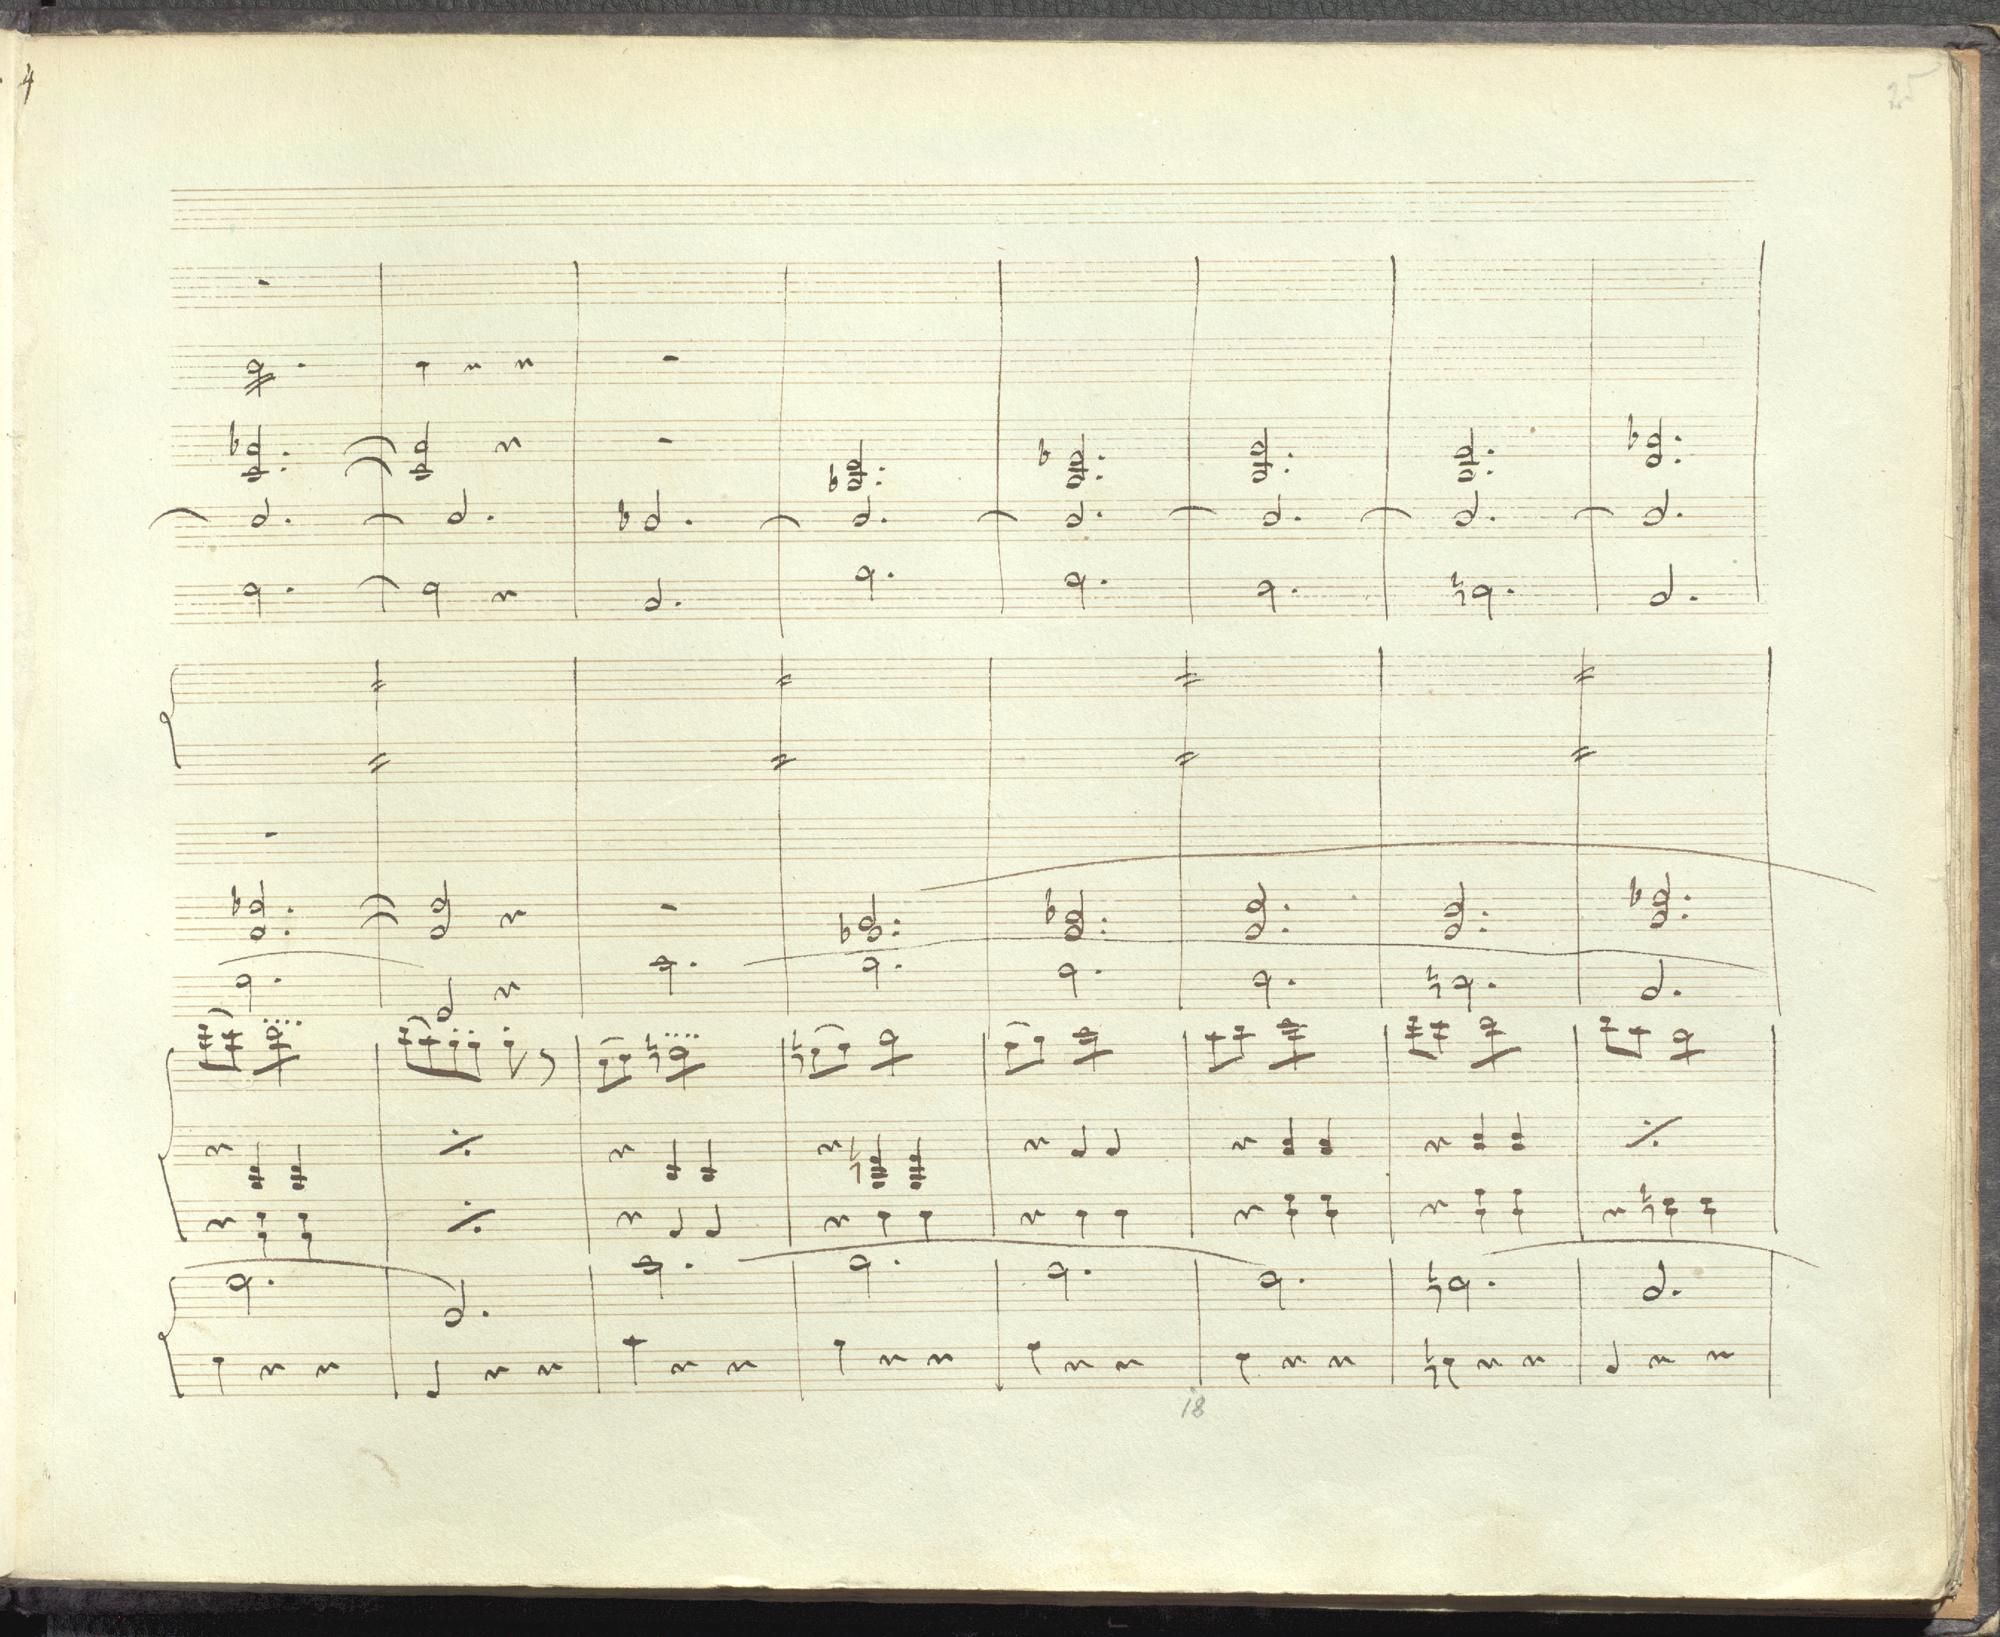 4
25
18